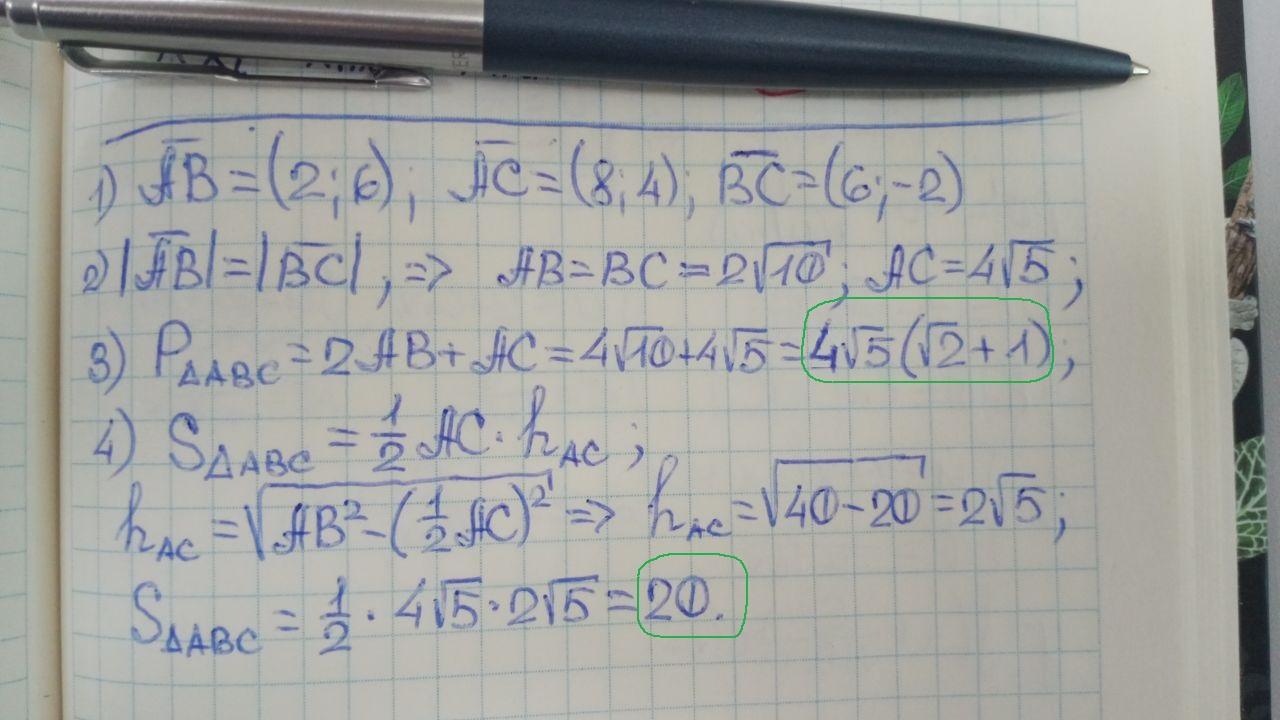 1) A̅B̅ = (2; 6); A̅C̅ = (8; 4); B̅C̅ = (6; -2)
2) |A̅B̅| = |B̅C̅|, => AB = BC = 2√10; AC = 4√5;
3) P△ABC = 2AB + AC = 4√10 + 4√5 = 4√5(√2 + 1);
4) S△ABC = 1/2 AC · hAC;
hAC = √(AB² - (1/2 AC)²) => hAC = √(40 - 20) = 2√5;
S△ABC = 1/2 · 4√5 · 2√5 = 20.